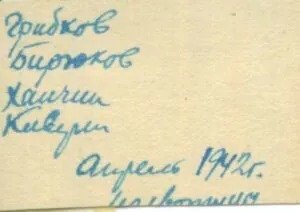 Грибков
Бирюков
Ханчин
Каверин
Апрель 1942г.